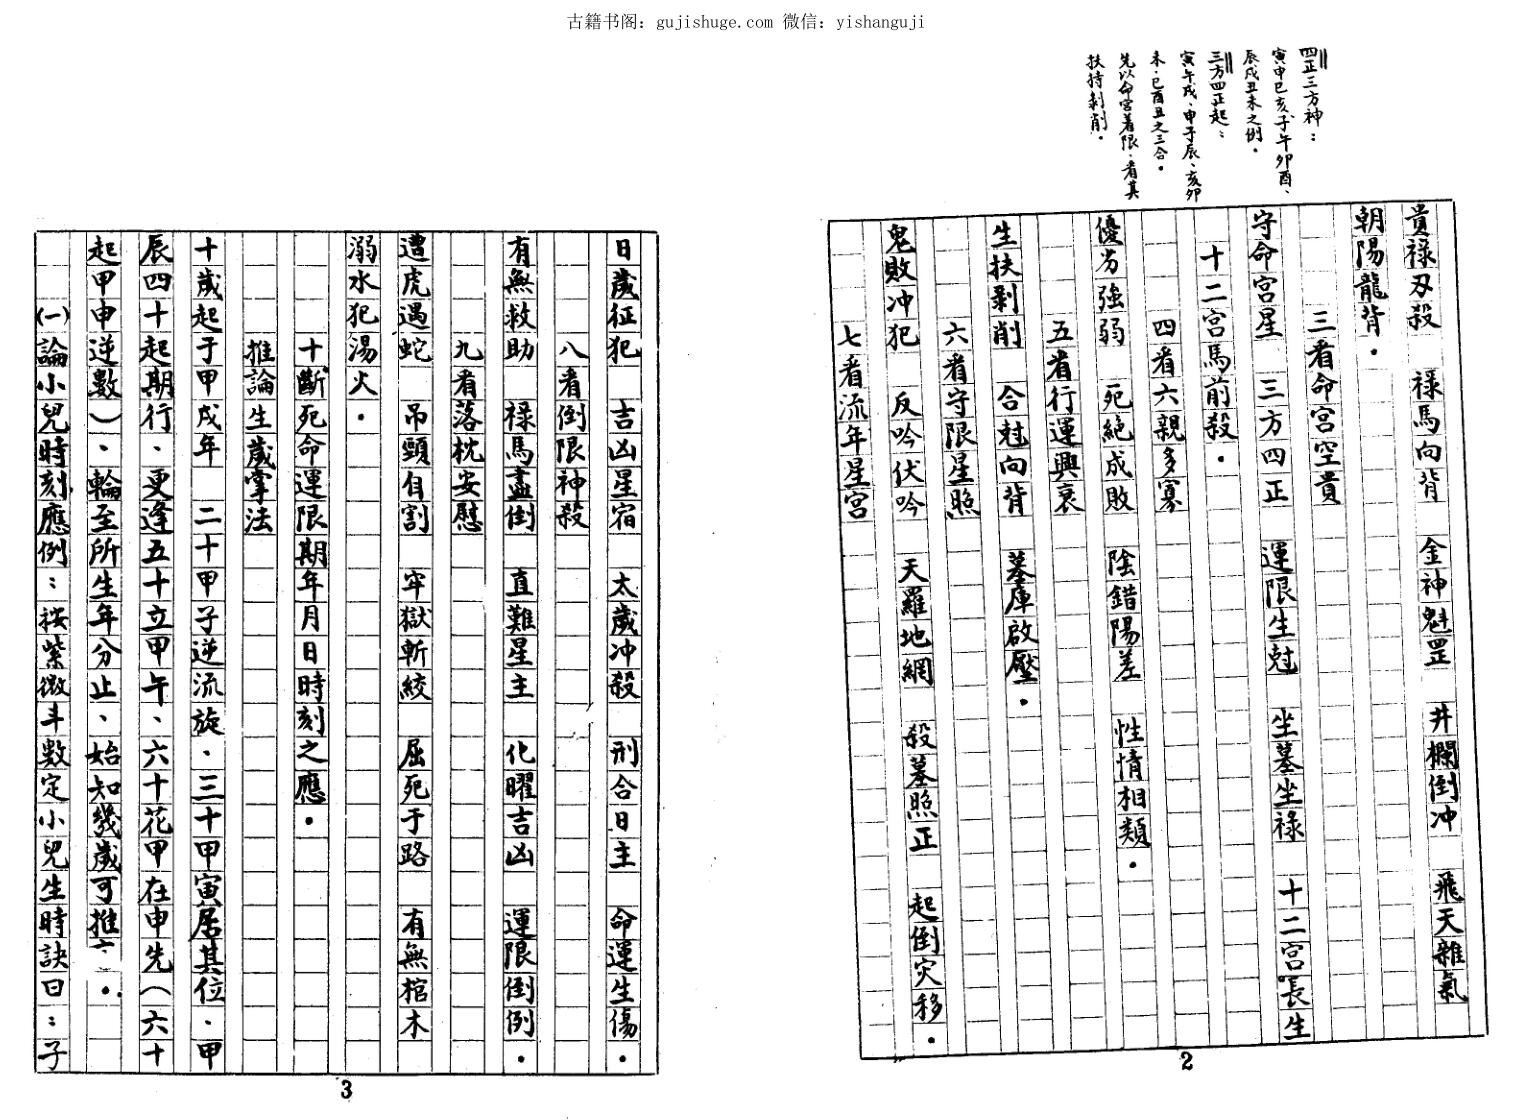 古籍书阁：gujishuge.com 微信：yishanguji
四正三方神：
寅申巳亥、子午卯酉、
辰戌丑未之例。
三方四正起：
寅午戌、申子辰、亥卯
未、巳酉丑之三合。
先以命宮着限、看其
扶持剝削。
貴祿刃殺　祿馬向背　金神魁罡　井欄倒冲　飛天雜氣
朝陽龍背。
三看命宮空貴
守命宮星　三方四正　運限生尅　坐墓坐祿　十二宮長生
十二宮馬前殺。
四看六親多寡
優劣強弱　死絕成敗　陰錯陽差　性情相類。
五看行運興衰
生扶剝削　合尅向背　墓庫啟壓。
六看守限星照
鬼敗冲犯　反吟伏吟　天羅地網　殺墓照正　起倒灾移。
七看流年星宮
2
日歲征犯　吉凶星宿　太歲冲殺　刑合日主　命運生傷。
八看倒限神殺
有無救助　祿馬盡倒　直難星主　化曜吉凶　運限倒例。
九看落枕安慰
遭虎遇蛇　吊頸自割　牢獄斬絞　屈死于路　有無棺木
溺水犯湯火。
十斷死命運限期年月日時刻之應。
推論生歲掌法
十歲起于甲戌年　二十甲子逆流旋．三十甲寅居其位．甲
辰四十起期行、更逢五十立甲午、六十花甲在申先（六十
起甲申逆數）、輪至所生年分止、始知幾歲可推　。
㈠論小兒時刻應例：按紫微斗數定小兒生時訣曰：子
3